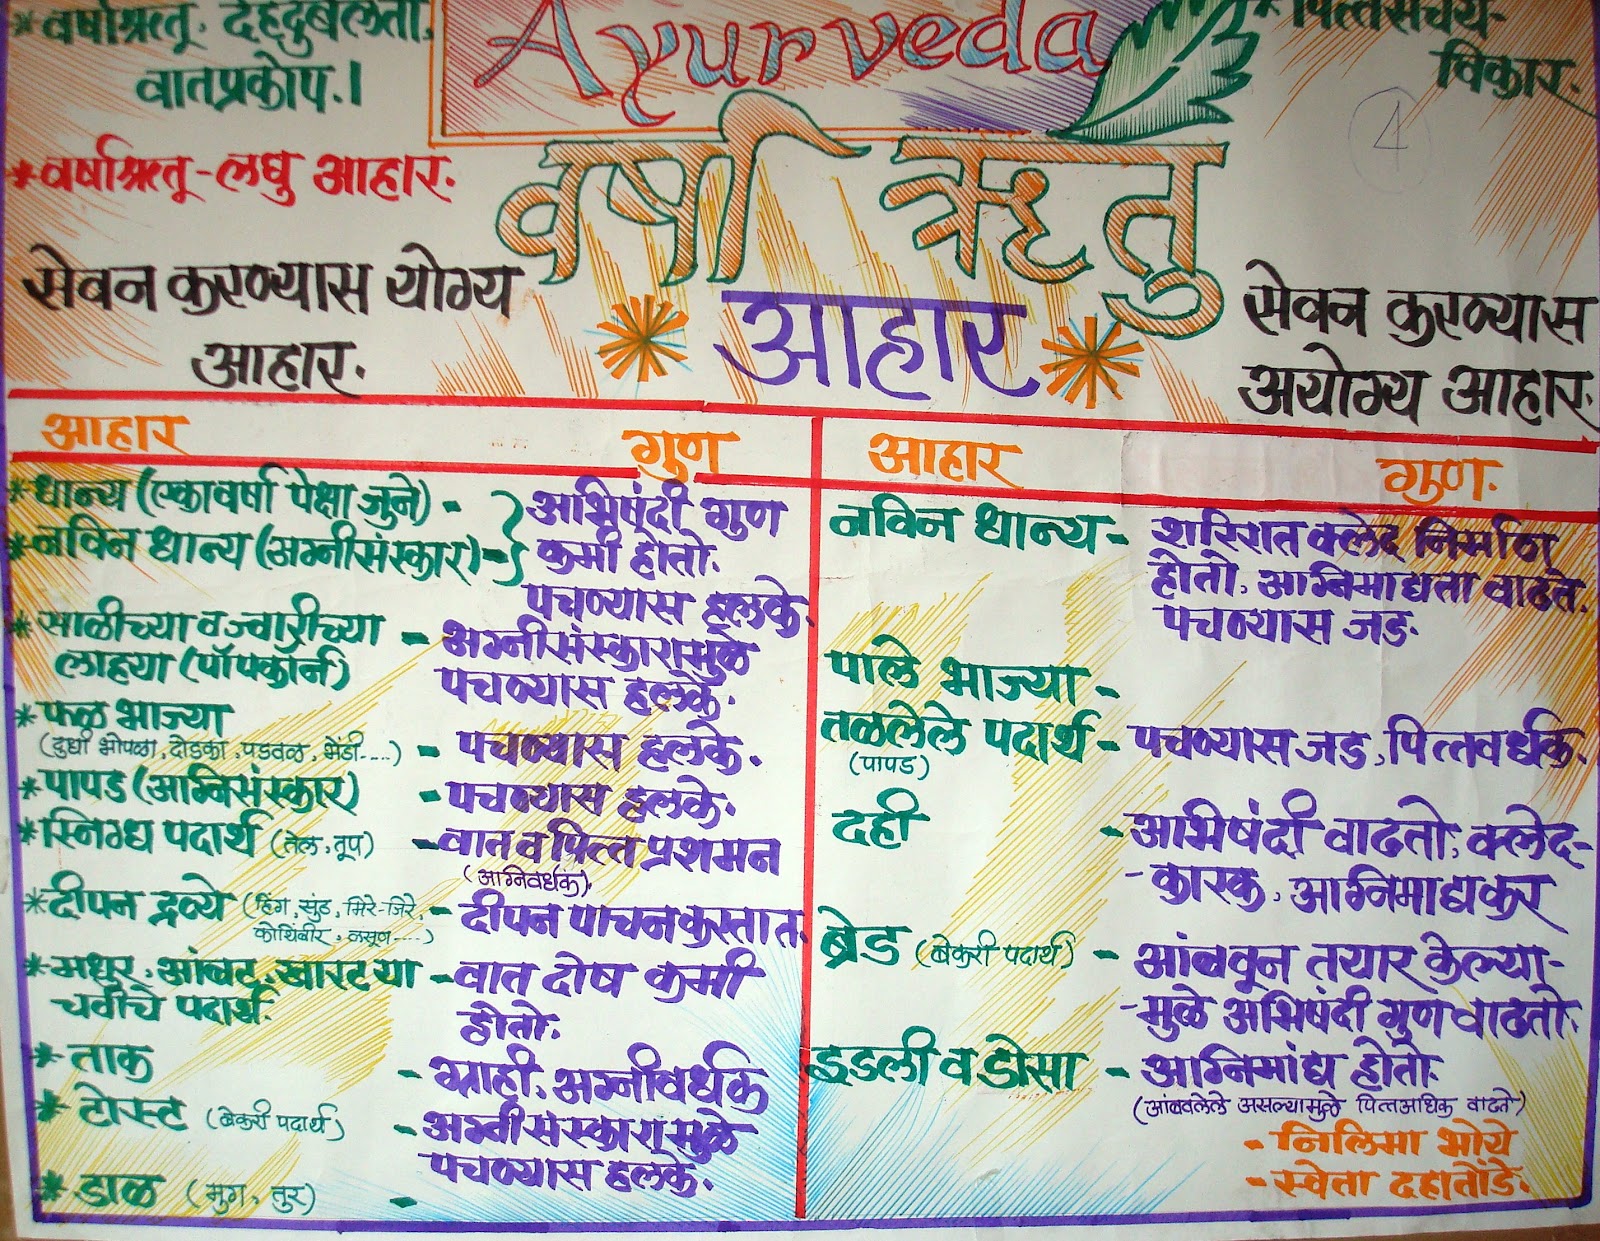 * वर्षाऋतू. देहदुर्बलता.
वातप्रकोप.।
Ayurveda
* पित्तसंचय-
विकार.
4
* वर्षाऋतू - लघु आहार.
वर्षा ऋतु
आहार
सेवन करण्यास योग्य
आहार.
सेवन करण्यास
अयोग्य आहार.
आहार गुण
* धान्य (एकावर्षा पेक्षा जुने) -
* नविन धान्य (अग्नीसंस्कार) -
अभिषंदी गुण
कमी होतो.
पचण्यास हलके.
* साळीच्या व ज्वारीच्या -
लाह्या (पॉपकॉर्न)
अग्नीसंस्कारामुळे
पचण्यास हलके.
* फळ भाज्या
(दुधी भोपळा, दोडका, पडवळ, भेंडी....) - पचण्यास हलके.
* पापड (अग्निसंस्कार) - पचण्यास हलके.
* स्निग्ध पदार्थ (तेल, तूप) - वात व पित्त प्रशमन
(अग्निवर्धक).
* दीपन द्रव्ये (हिंग, सुंठ, मिरे-जिरे, - दीपन पाचन करतात.
कोथिंबीर, लसूण....)
* मधुर, आंबट, खारट या - वात दोष कमी
चवीचे पदार्थ. होतो.
* ताक - ग्राही, अग्नीवर्धक
* टोस्ट (बेकरी पदार्थ) - अग्नीसंस्कारामुळे
पचण्यास हलके.
* डाळ (मुग, तुर) -
आहार गुण.
नविन धान्य - शरिरात क्लेद निर्माण
होतो, अग्निमाद्यता वाढते.
पचण्यास जड.
पाले भाज्या -
तळलेले पदार्थ - पचण्यास जड, पित्तवर्धक.
(पापड)
दही - अभिषंदी वाढतो, क्लेद-
- कारक, अग्निमाद्यकर
ब्रेड (बेकरी पदार्थ) - आंबवून तयार केल्या-
- मुळे अभिषंदी गुण वाढतो.
इडली व डोसा - अग्निमांद्य होतो.
(आंबवलेले असल्यामुळे पित्तअधिक वाढते)
- निलिमा भोये
- स्वेता दहातोंडे.